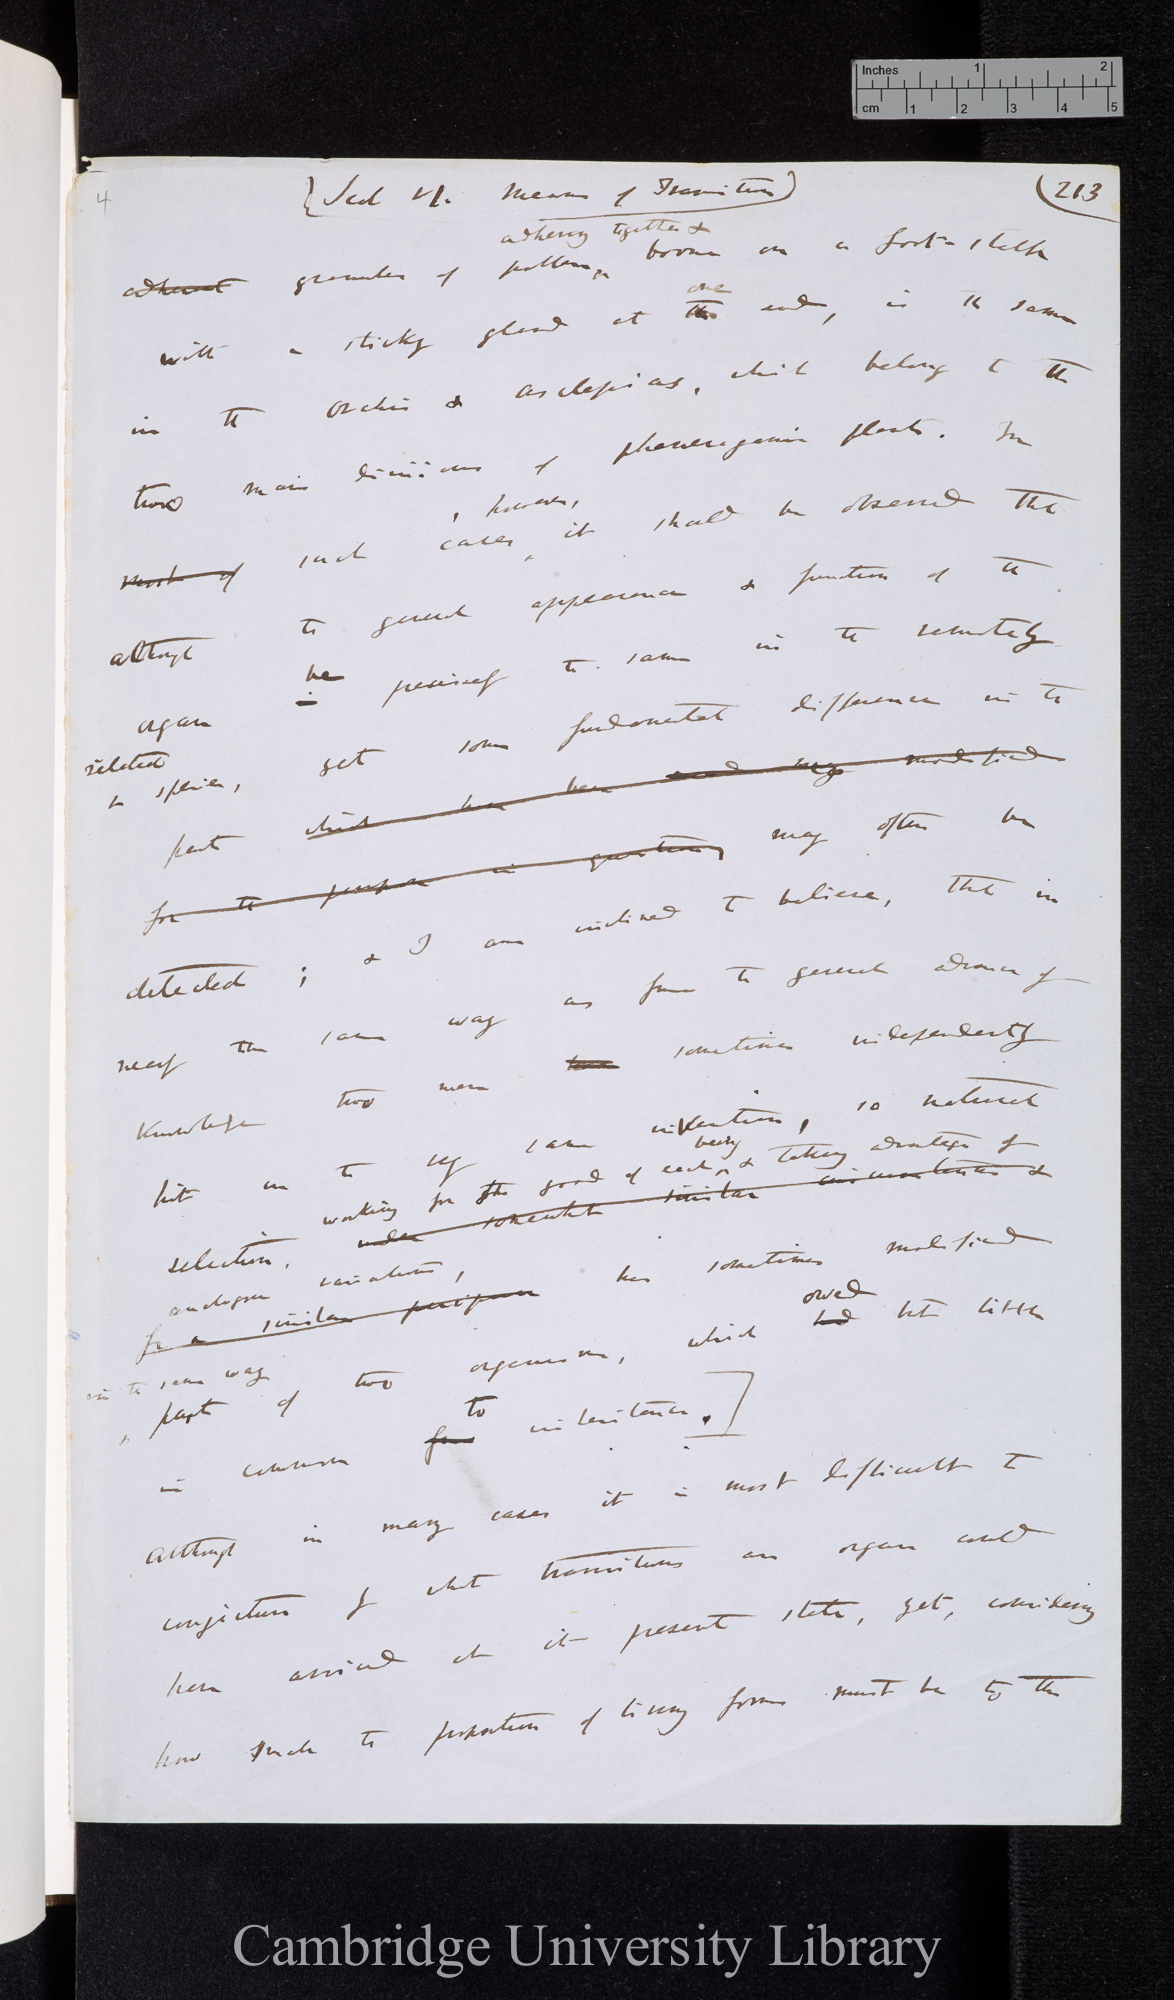 Inches 1 2
cm 1 2 3 4 5
4
(Sect VI. Means of Transition)
(213
adhering together &
adherent granules of pollen, borne on a foot-stalk
one
with a sticky gland at the end, is the same
in the Orchis & Asclepias, which belong to the
two main divisions of phanerogamic plants. In
, however,
most of such cases, it should be observed that
although the general appearance & function of the
be
organ is precisely the same in the remotely
related
species, yet some fundamental difference in the
part which have been modified
for the purpose in question, may often be
detected ; & I am inclined to believe, that in
nearly the same way as from the general advance of
knowledge two men have sometimes independently
hit on the same invention, so natural
being
working for the good of each & taking advantage of
selection, under somewhat similar circumstances &
analogous variations,
for a similar purpose has sometimes modified
owed
in the same way
part of two organisms, which had but little
to
in common from inheritance.]
Although in many cases it is most difficult to
conjecture by what transitions an organ could
have arrived at its present state, yet, considering
how small the proportion of living forms must be to the
Cambridge University Library